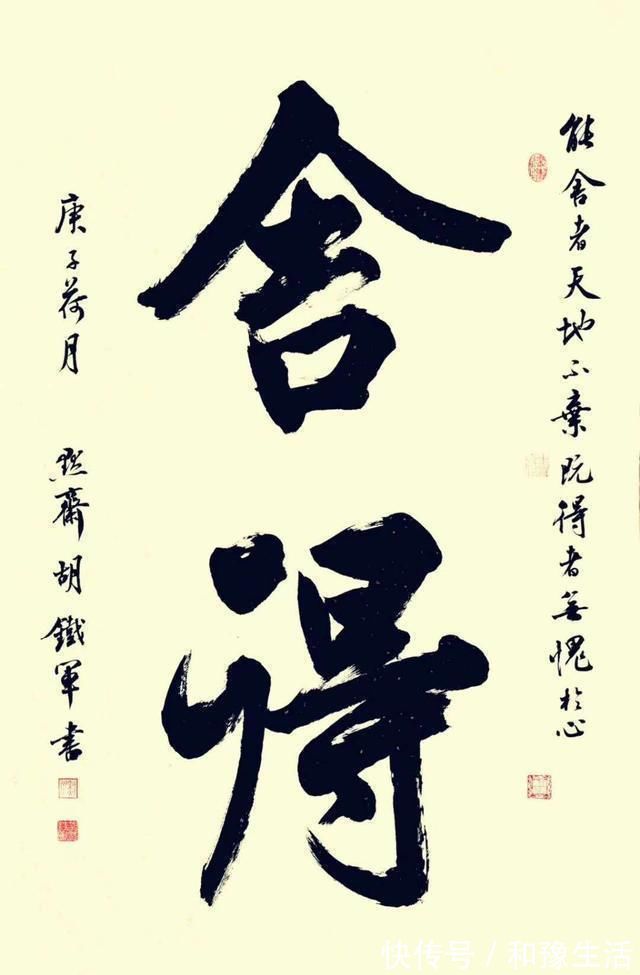 能舍者天地不棄既得者無愧於心
舍得
庚子荷月 默齋胡鐵軍書
快传号 / 和豫生活